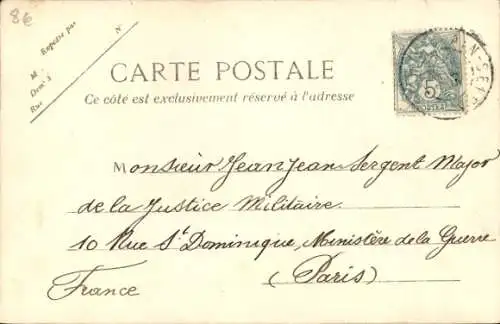 86
Exposée par
N°
M
Dem<sup>t</sup> à
Rue
CARTE POSTALE
Ce côté est exclusivement réservé à l'adresse
5
Monsieur Jean Jean Sergent Major
de la Justice Militaire.
10 Rue S<sup>t</sup> Dominique, Ministère de la Guerre
(Paris)
France